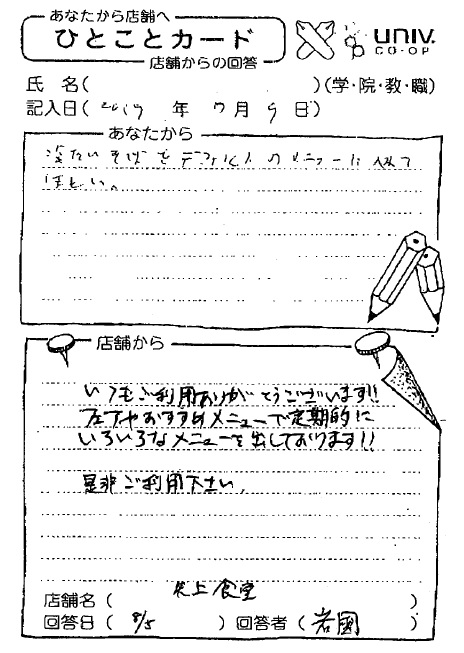 あなたから店舗へ
ひとことカード
店舗からの回答
UNIV.
CO-OP
氏 名( )(学・院・教・職)
記入日( 2019 年 7 月 9 日)
あなたから
冷たいそばをデフォルトのメニューに入れて
ほしい。
店舗から
いつもご利用ありがとうございます!!
フェアやおすすめメニューで定期的に
いろいろなメニューを出しております!!
是非ご利用下さい。
店舗名( 矢上食堂 )
回答日( 8/5 ) 回答者( 岩国 )